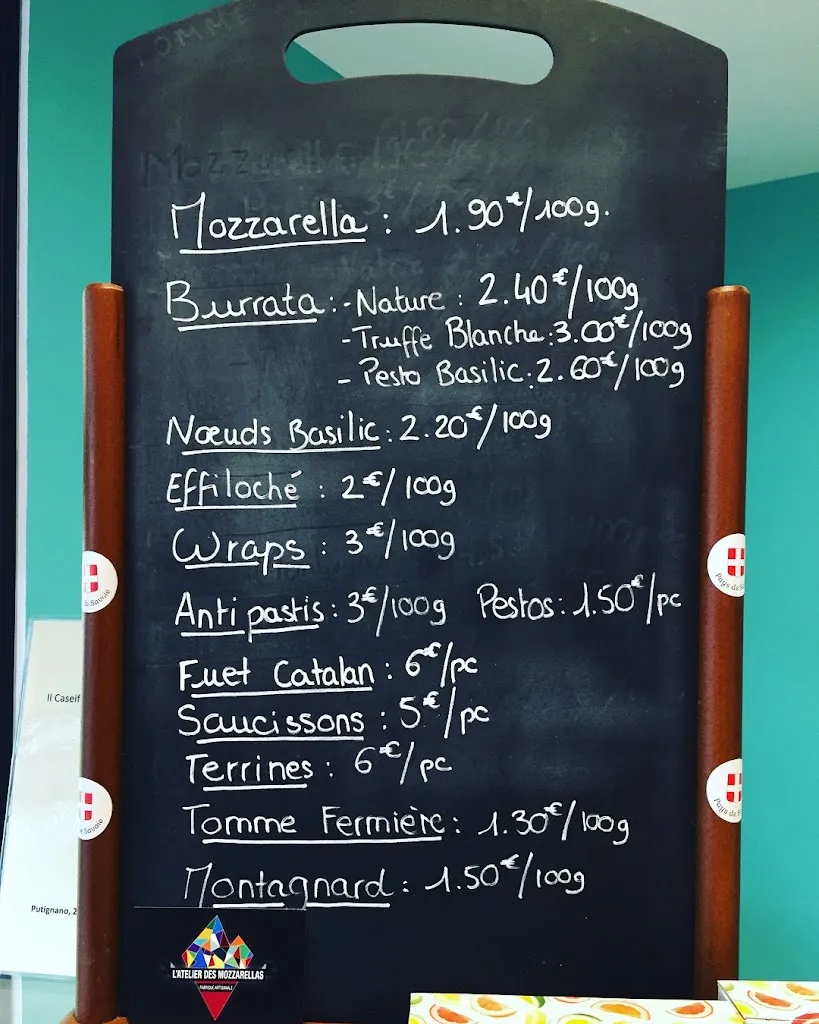 TOMME
Mozzarella
Mozzarella : 1.90€/100g.
Burrata : - Nature : 2.40€/100g
- Truffe Blanche : 3.00€/100g
- Pesto Basilic : 2.60€/100g
Nœuds Basilic : 2.20€/100g
Effiloché : 2€/100g
Wraps : 3€/100g
Anti pastis : 3€/100g Pestos : 1.50€/pc
Fuet Catalan : 6€/pc
Saucissons : 5€/pc
Terrines : 6€/pc
Tomme Fermière : 1.30€/100g
Montagnard : 1.50€/100g
L'ATELIER DES MOZZARELLAS
FABRIQUE ARTISANALE
de Savoie
Pays de S
de Savoie
Pays de S
Il Caseif
Putignano, 2